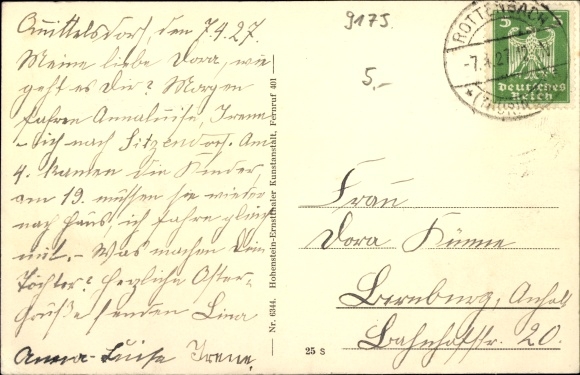 Quittelsdorf, den 7.4.27.
Meine liebe Dora, wie
geht es dir? Morgen
fahren Annaluise, Irene
- ich nach Sitzendorf. Am
4. kamen die Kinder,
am 19. müssen sie wieder
nach Haus, ich fahre gleich
mit. - Was machen Dein
Töchter? Herzliche Oster-
Grüße senden Lina
Anna-Luise Irene.
Nr. 6344. Hohenstein-Ernstthaler Kunstanstalt, Fernruf 401
25 S
9175
5.-
ROTTENBACH
-7.4.27.
(THÜR)
5
Deutsches
Reich
Frau
Dora Künne
Bernburg, Anhalt
Bahnhofstr. 20.